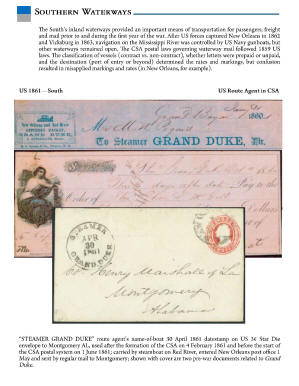 SOUTHERN WATERWAYS
The South's inland waterways provided an important means of transportation for passengers; freight
and mail prior to and during the first year of the war. After US forces captured New Orleans in 1862
and Vicksburg in 1863, navigation on the Mississippi River was controlled by US Navy gunboats, but
other waterways remained open. The CSA postal laws governing waterway mail followed 1859 US
laws. The classification of vessels (contract vs. non-contract), whether letters were prepaid or unpaid,
and the destination (port of entry or beyond) determined the rates and markings, but confusion
resulted in misapplied markings and rates (in New Orleans, for example).
US 1861—South
US Route Agent in CSA
1860
New Orleans and Red River
GRAND DUKE,
To Steamer GRAND DUKE, Dr.
days after date Pay to the
Order of
Dollars
STEAMER
APR
30
1861
GRAND DUKE
Henry Marshall of La
Montgomery
Alabama
"STEAMER GRAND DUKE" route agent's name-of-boat 30 April datestamp on US 3¢ Star Die
envelope to Montgomery AL, used after the formation of the CSA on 4 February 1861 and before the start of
the CSA postal system on 1 June 1861; carried by steamboat on Red River, entered New Orleans post office 1
May and sent by regular mail to Montgomery; shown with cover are two pre-war documents related to Grand
Duke.